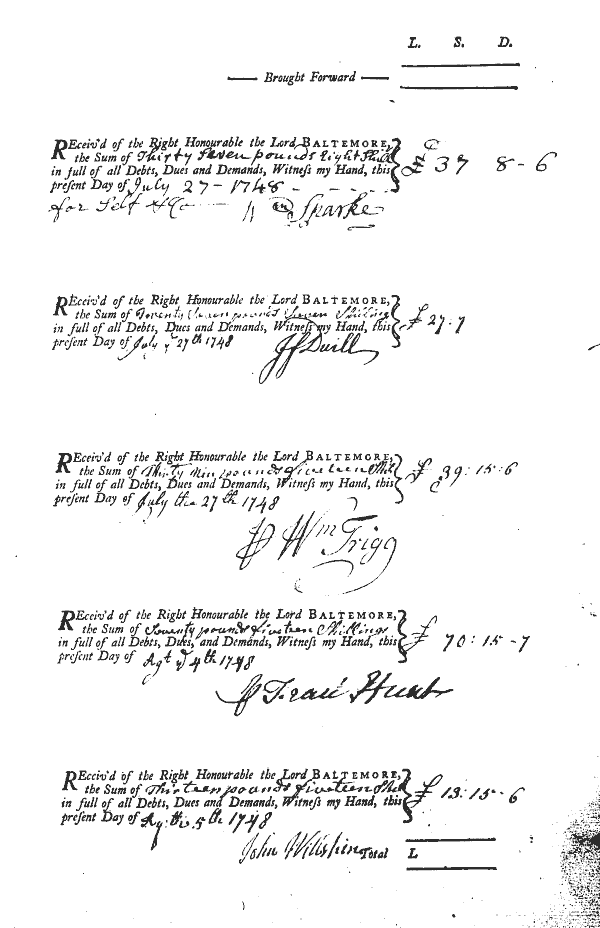 L. S. D.
Brought Forward
REceiv'd of the Right Honourable the Lord BALTEMORE,
the Sum of Thirty Seven pounds Eight Shill
in full of all Debts, Dues and Demands, Witneſs my Hand, this
preſent Day of July 27 - 1748
£ 37 8 - 6
for Self & Co Wm Sparke
REceiv'd of the Right Honourable the Lord BALTEMORE,
the Sum of Twenty Seven pounds Seven Shilling
in full of all Debts, Dues and Demands, Witneſs my Hand, this
preſent Day of July ye 27th 1748
£ 27 . 7
REceiv'd of the Right Honourable the Lord BALTEMORE,
the Sum of Thirty Nin pounds fiveteen Shil
in full of all Debts, Dues and Demands, Witneſs my Hand, this
preſent Day of July the 27th 1748
£ 39 : 15 : 6
P Wm Trigg
REceiv'd of the Right Honourable the Lord BALTEMORE,
the Sum of Seventy pounds fiveteen Shillings
in full of all Debts, Dues, and Demands, Witneſs my Hand, this
preſent Day of Agt ye 4th 1748
£ 70 : 15 - 7
Hunt
REceiv'd of the Right Honourable the Lord BALTEMORE,
the Sum of Thirteen pounds fiveteen Shil
in full of all Debts, Dues and Demands, Witneſs my Hand, this
preſent Day of Ag: the 5th 1748
£ 13 : 15 - 6
John
Total L